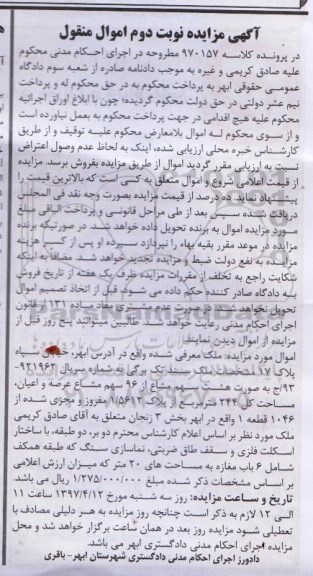 آگهی مزایده نوبت دوم اموال منقول
در پرونده کلاسه ۹۷۰۱۵۷ مطروحه در اجرای احکام مدنی محکوم
علیه صادق کریمی و غیره به موجب دادنامه صادره از شعبه سوم دادگاه
عمومی حقوقی ابهر به پرداخت محکوم به در حق محکوم له و پرداخت
نیم عشر دولتی در حق دولت محکوم گردیده؛ چون با ابلاغ اوراق اجرائیه
محکوم علیه هیچ اقدامی در جهت پرداخت محکوم به بعمل نیاورده است
و از سوی محکوم له اموال بلامعارض محکوم علیه توقیف و از طریق
کارشناس خبره محلی ارزیابی شده، اینک به لحاظ عدم وصول اعتراض
نسبت به ارزیابی مقرر گردید اموال از طریق مزایده بفروش برسد. مزایده
از قیمت اعلامی شروع و اموال متعلق به کسی است که بالاترین قیمت را
پیشنهاد نماید. ده درصد از قیمت مزایده بصورت وجه نقد فی المجلس
دریافت شده سپس بعد از طی مراحل قانونی و پرداخت الباقی مبلغ
مورد مزایده اموال به برنده تحویل داده خواهد شد. در صورتیکه برنده
مزایده در موعد مقرر بقیه بهاء را نپردازد سپرده او پس از کسر هزینه
مزایده به نفع دولت ضبط و مزایده تجدید خواهد شد. مضافاً به اینکه
شکایت راجع به تخلف از مقررات مزایده ظرف یک هفته از تاریخ فروش
به دادگاه صادر کننده حکم داده می شود. قبل از اتخاذ تصمیم اموال
تحویل نخواهد شد در صورت نبودن مشتری مفاد ماده ۱۳۱ از قانون
اجرای احکام مدنی رعایت خواهد شد. طالبین میتوانید پنج روز قبل از
مزایده از اموال دیدن نمایند.
اموال مورد مزایده: ملک معرفی شده واقع در آدرس ابهر، خیابان سپاه
پلاک ۱۷ مشخصات ملک سند تک برگی به شماره سریال ۹۲۱۹۶۲-
ج/۹۳ به صورت هشت سهم مشاع از ۹۶ سهم مشاع عرصه و اعیان،
مساحت کل ۲۴۴ مترمربع از پلاک ۱/۵۶۱۲ مفروز و مجزی شده از
۱۰۴۶ قطعه ۱ واقع در ابهر بخش ۳ زنجان متعلق به آقای صادق کریمی
ملک مورد نظر بر اساس اعلام کارشناس محترم دو بر، دو طبقه، با ساختار
اسکلت فلزی و سقف طاق ضربتی، نماسازی سنگ که طبقه همکف
شامل ۶ باب مغازه به مساحت های ۲۰ متر که میزان ارزش اعلامی
بر اساس مشخصات ذکر شده مبلغ ۱/۲۷۵/۰۰۰/۰۰۰ ریال می باشد.
تاریخ و ساعت مزایده: روز سه شنبه مورخ ۱۳۹۷/۴/۱۲ ساعت ۱۱
الی ۱۲ لازم به ذکر است چنانچه روز مزایده به هر دلیلی مصادف با
تعطیلی شود مزایده روز بعد در همان ساعت برگزار خواهد شد و محل
مزایده اجرای احکام مدنی دادگستری ابهر می باشد.
دادورز اجرای احکام مدنی دادگستری شهرستان ابهر- باقری